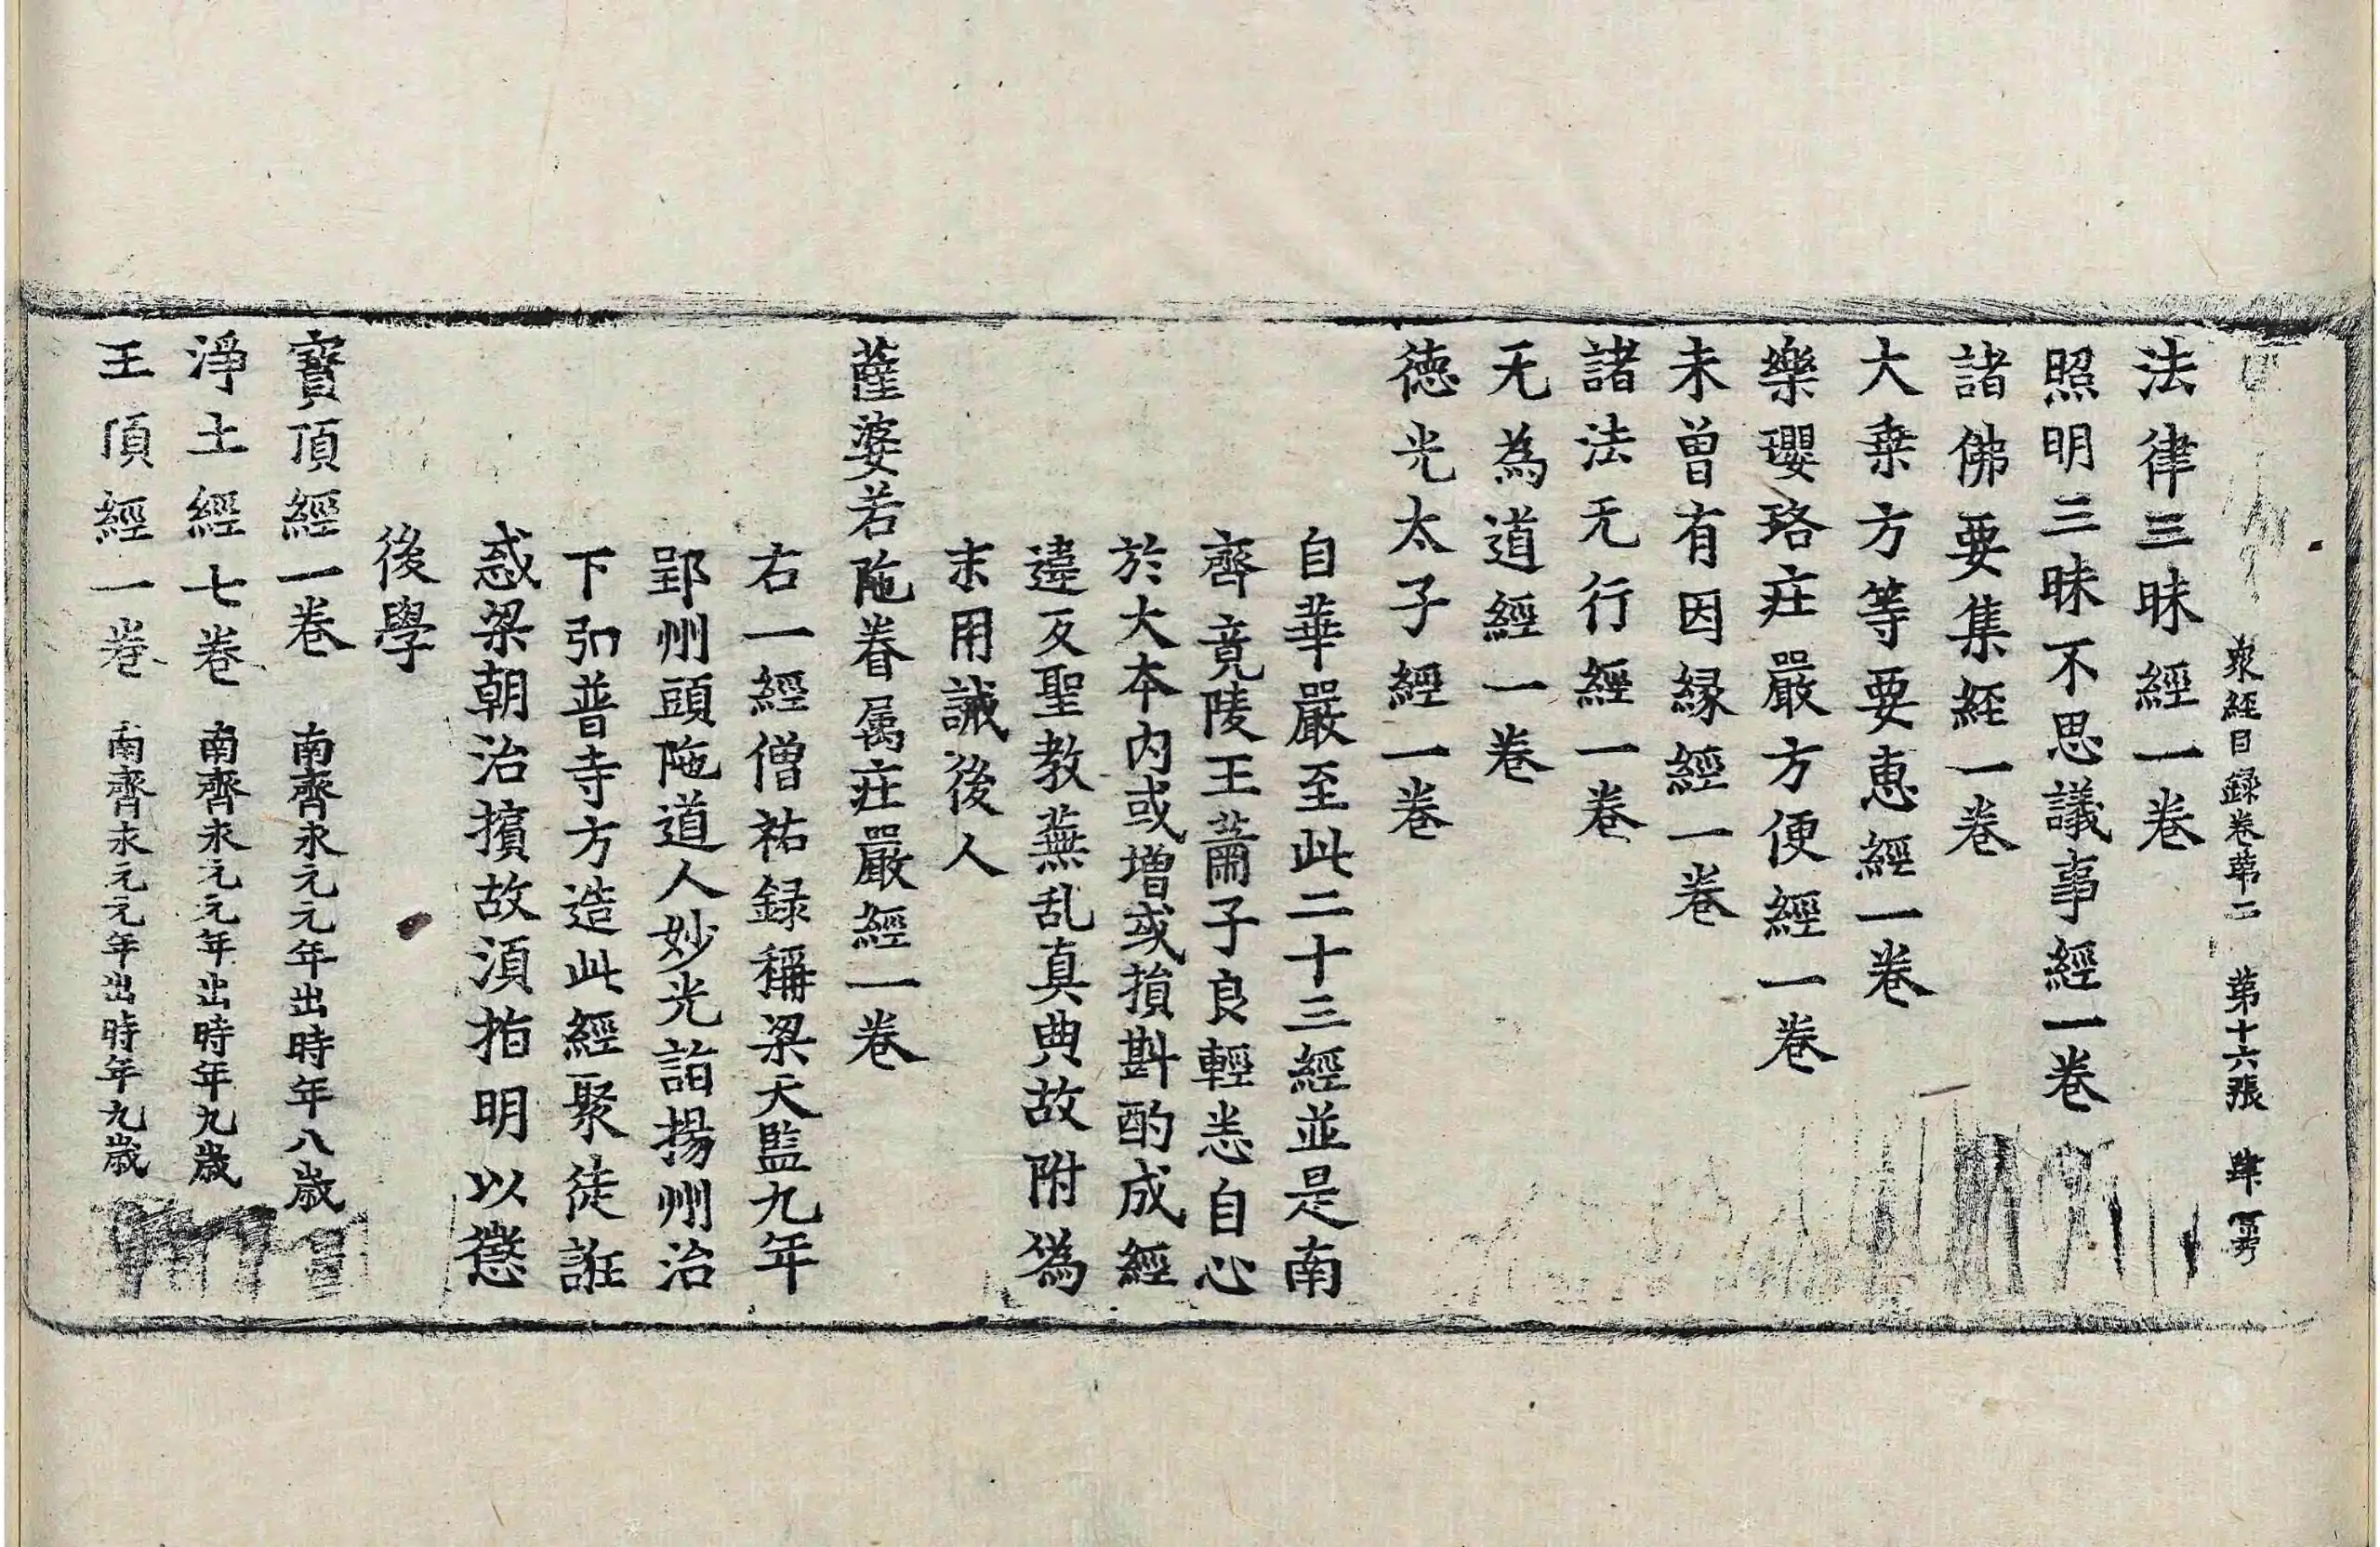 衆經目録卷第二 第十六張 肆
法律三昧經一卷
照明三昧不思議事經一卷
諸佛要集経一卷
大乗方等要惠經一卷
樂瓔珞庄嚴方便經一卷
未曽有因縁經一卷
諸法无行經一卷
无為道經一卷
徳光太子經一卷
自華嚴至此二十三經並是南
齊竟陵王蕭子良輕恙自心
於大本内或増或損斟酌成經
違反聖教蕪乱真典故附偽
末用誡後人
薩婆若陁眷属庄嚴經一卷
右一經僧祐録稱梁天監九年
郢州頭陁道人妙光詣揚州治
下弘普寺方造此經聚徒誑
惑梁朝治擯故湏指明以懲
後學
寶頂經一卷 南齊永元元年出時年八歳
淨土經七卷 南齊永元元年出時年九歳
王頂經一卷 南齊永元元年出時年九歳